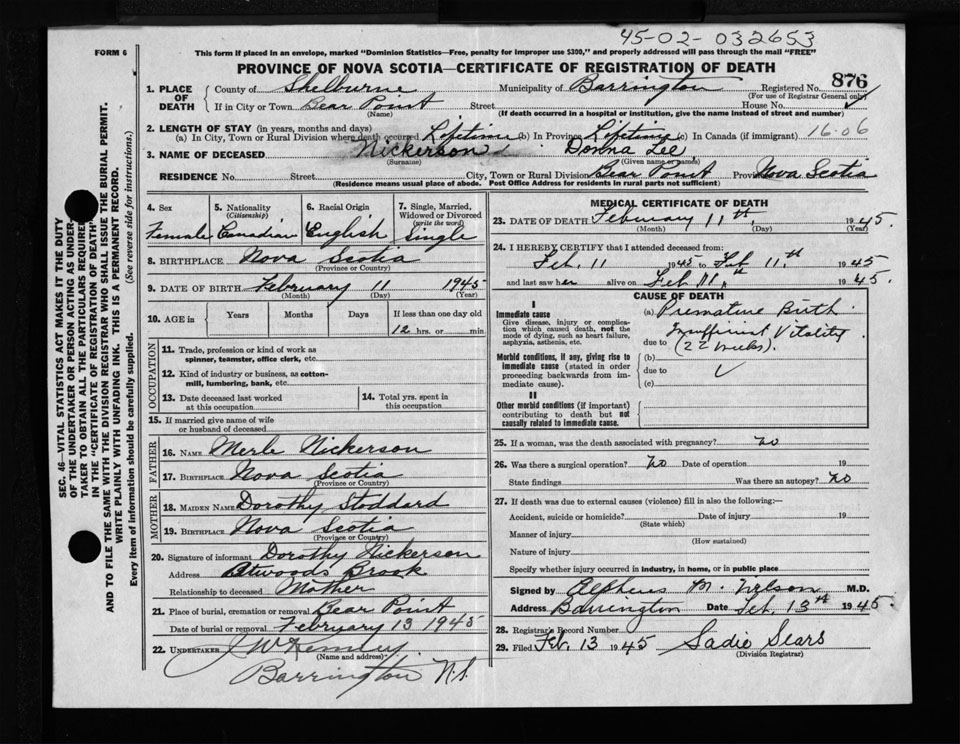 45-02-032653
FORM 6
This form if placed in an envelope, marked "Dominion Statistics—Free, penalty for improper use $300," and properly addressed will pass through the mail "FREE"
PROVINCE OF NOVA SCOTIA—CERTIFICATE OF REGISTRATION OF DEATH
876
1. PLACE OF DEATH
County of Shelburne Municipality of Barrington Registered No.
(For use of Registrar General only)
If in City or Town Bear Point Street House No.
(Name) (If death occurred in a hospital or institution, give the name instead of street and number)
2. LENGTH OF STAY (in years, months and days)
(a) In City, Town or Rural Division where death occurred Lifetime (b) In Province Lifetime (c) In Canada (if immigrant) 16.06
3. NAME OF DECEASED Nickerson Donna Lee
(Surname) (Given name or names)
RESIDENCE No. Street City, Town or Rural Division Bear Point Prov. Nova Scotia
(Residence means usual place of abode. Post Office Address for residents in rural parts not sufficient)
4. Sex Female
5. Nationality (Citizenship) Canadian
6. Racial Origin English
7. Single, Married, Widowed or Divorced (write the word) Single
8. BIRTHPLACE Nova Scotia
(Province or Country)
9. DATE OF BIRTH February 11 1945
(Month) (Day) (Year)
10. AGE in Years Months Days If less than one day old
12 hrs. or min.
OCCUPATION
11. Trade, profession or kind of work as spinner, teamster, office clerk, etc.
12. Kind of industry or business, as cotton-mill, lumbering, bank, etc.
13. Date deceased last worked at this occupation
14. Total yrs. spent in this occupation
15. If married give name of wife or husband of deceased
FATHER
16. NAME Merle Nickerson
17. BIRTHPLACE Nova Scotia
(Province or Country)
MOTHER
18. MAIDEN NAME Dorothy Stoddard
19. BIRTHPLACE Nova Scotia
(Province or Country)
20. Signature of informant Dorothy Nickerson
Address Atwoods Brook
Relationship to deceased Mother
21. Place of burial, cremation or removal Bear Point
Date of burial or removal February 13 1945
22. UNDERTAKER J W
(Name and address)
Barrington N.S.
MEDICAL CERTIFICATE OF DEATH
23. DATE OF DEATH February 11th, 1945.
(Month) (Day) (Year)
24. I HEREBY CERTIFY that I attended deceased from:
Feb. 11 1945 to Feb 11.th 1945
and last saw her alive on Feb 11th 1945.
CAUSE OF DEATH
I
Immediate cause
Give disease, injury or complication which caused death, not the mode of dying, such as heart failure, asphyxia, asthenia, etc.
(a) Premature Birth
Insufficient Vitality
due to (22 weeks).
Morbid conditions, if any, giving rise to immediate cause (stated in order proceeding backwards from immediate cause).
(b)
due to
(c)
II
Other morbid conditions (if important) contributing to death but not causally related to immediate cause.
25. If a woman, was the death associated with pregnancy? no
26. Was there a surgical operation? No Date of operation 19
State findings Was there an autopsy? no
27. If death was due to external causes (violence) fill in also the following:—
Accident, suicide or homicide? Date of injury 19
(State which)
Manner of injury
(How sustained)
Nature of injury
Specify whether injury occurred in industry, in home, or in public place
Signed by Alpheus M. Wilson M.D.
Address Barrington Date Feb. 13th 1945.
28. Registrar's Record Number
29. Filed Feb. 13 1945 Sadie Sears
(Division Registrar)
SEC. 46—VITAL STATISTICS ACT MAKES IT THE DUTY
OF THE UNDERTAKER OR PERSON ACTING AS UNDER-
TAKER TO OBTAIN ALL THE PARTICULARS REQUIRED
IN THE "CERTIFICATE OF REGISTRATION OF DEATH"
AND TO FILE THE SAME WITH THE DIVISION REGISTRAR WHO SHALL ISSUE THE BURIAL PERMIT.
WRITE PLAINLY WITH UNFADING INK. THIS IS A PERMANENT RECORD.
Every item of information should be carefully supplied. (See reverse side for instructions.)